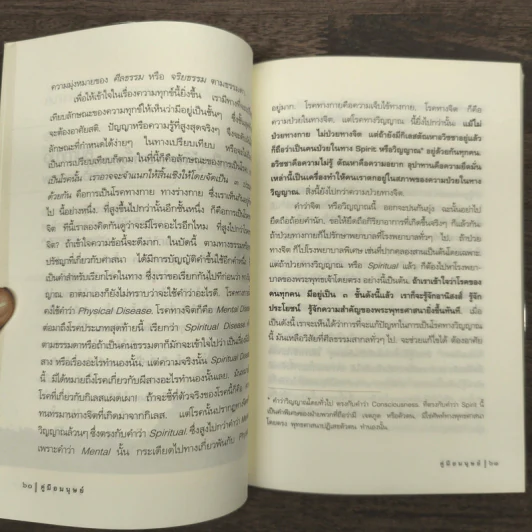 ความมุ่งหมายของ ศีลธรรม หรือ จริยธรรม ตามธรรมดา
เพื่อให้เข้าใจในเรื่องความทุกข์นี้ยิ่งขึ้น เรามีทาง
เทียบลักษณะของความทุกข์ให้เห็นว่ามีอยู่เป็นชั้นๆ ซึ่ง
จะต้องอาศัยสติ ปัญญาหรือความรู้ที่สูงสุดจริงๆ จึงจะ
ลักษณะที่กำหนดได้ง่ายๆ ในทางเปรียบเทียบ หรือ
เป็นการเปรียบเทียบก็ตาม ในที่นี้ก็คือลักษณะของการเป็น
เป็นโรคนั้น เราอาจจะจำแนกให้สิ้นเชิงให้โดยจัดเป็น ๓
ด้วยกัน คือการเป็นโรคทางกาย ทางร่างกาย ซึ่งเราเห็นกัน
ไป นี้อย่างหนึ่ง, ที่สูงขึ้นไปกว่านั้นอีกชั้นหนึ่ง ก็คือการเป็นโรค
จิต ทีนี้เราลองคิดกันดูว่าจะมีโรคอะไรอีกไหม ที่สูงไปกว่าโรค
จิต? ถ้าเข้าใจความข้อนี้จะดีมาก. ในบัดนี้ ตามทางธรรมหรือ
ปรัชญาที่เกี่ยวกับศาสนา ได้มีการบัญญัติคำขึ้นใช้อีกคำหนึ่ง
เป็นคำสำหรับเรียกโรคในทาง ซึ่งเราขอเรียกกันไปทีก่อนว่า
ญาณ. อาตมาเองก็ยังไม่ทราบว่าจะใช้คำว่าอะไรดี. โรคทาง
คงใช้คำว่า Physical Disease. โรคทางจิตก็คือ Mental
ต่อมาถึงโรคประเภทสุดท้ายนี้ เรียกว่า Spiritual Disease
ตามธรรมดาหรือถ้าเป็นคนธรรมดาก็มักจะเข้าใจไปว่า เป็นเรื่อง
สาง หรือเรื่องอะไรทำนองนั้น, แต่ความจริงนั้น Spiritual
นี้ มิได้หมายถึงโรคเกี่ยวกับผีสางอะไรทำนองนั้นเลย,
โรคที่เกี่ยวกับกิเลสแผดเผา! ถ้าจะชี้ที่ตัวจริงของโรคนี้ก็คือ
ทนทรมานทางจิตที่เกิดมาจากกิเลส. แต่โรคนั้นปรากฏทาง
วิญญาณล้วนๆ ซึ่งตรงกับคำว่า Spiritual, ซึ่งสูงไปกว่าคำว่า
เพราะคำว่า Mental นั้น กระเดียดไปทางเกี่ยวพันกับ
๖๐ | คู่มือมนุษย์
อยู่มาก. โรคทางกายคือความเจ็บไข้ทางกาย, โรคทางจิต ก็คือ
ความป่วยในทางจิต, แต่โรคทางวิญญาณ นี้ยิ่งไปกว่านั้น: แม้ไม่
ป่วยทางกาย ไม่ป่วยทางจิต แต่ถ้ายังมีกิเลสตัณหาอวิชชาอยู่แล้ว
ก็ถือว่าเป็นคนป่วยในทาง Spirit หรือวิญญาณ* อยู่ด้วยกันทุกคน.
อวิชชาคือความไม่รู้ ตัณหาคือความอยาก อุปาทานคือความยึดมั่น
เหล่านี้เป็นเครื่องทำให้คนเราตกอยู่ในสภาพของความป่วยในทาง
วิญญาณ, สิ่งนี้ยิ่งไปกว่าความป่วยทางจิต.
คำว่าจิต หรือวิญญาณนี้ ออกจะปนกันยุ่ง ฉะนั้นอย่าไป
ยึดถือถ้อยคำนัก, ขอให้ยึดถือกิริยาอาการที่เกิดขึ้นจริงๆ ก็แล้วกัน
ถ้าป่วยทางกายก็ไปรักษาพยาบาลที่โรงพยาบาลทั่วๆ ไป, ถ้าป่วย
ทางจิต ก็ไปโรงพยาบาลพิเศษ เช่นที่ปากคลองสานเป็นต้นโดยเฉพาะ,
แต่ถ้าป่วยทางวิญญาณ หรือ Spiritual แล้ว ก็ต้องไปหาโรงพยา-
บาลของพระพุทธเจ้าโดยตรง อย่างนี้เป็นต้น. ถ้าเราเข้าใจว่าโรคของ
คนทุกคน มีอยู่เป็น ๓ ชั้นดังนี้แล้ว เราก็จะรู้จักอานิสงส์ รู้จัก
ประโยชน์ รู้จักความสำคัญของพระพุทธศาสนายิ่งขึ้นทันที. เมื่อ
เป็นดังนี้ เราจะเห็นได้ว่าการที่จะแก้ปัญหาในการเป็นโรคทางวิญญาณ
นี้ มันเหลือวิสัยที่ศีลธรรมสากลทั่วๆ ไป จะช่วยแก้ไขได้ ต้องอาศัย
* คำว่าวิญญาณโดยทั่วไป ตรงกับคำว่า Consciousness ที่ตรงกับคำว่า Spirit นี้
เป็นคำพิเศษของฝ่ายพวกที่ถือว่ามี เจตภูต หรือตัวตน, มิใช่ศัพท์ทางพุทธศาสนา
โดยตรง พุทธศาสนาปฏิเสธตัวตน ทำนองนั้น.
คู่มือมนุษย์ | ๖๑